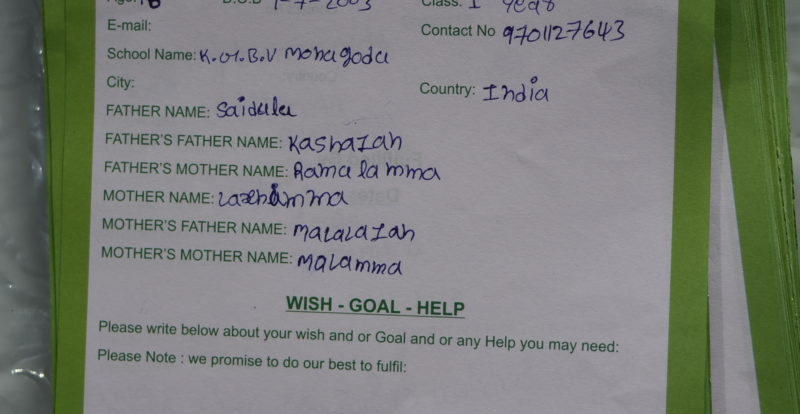 Age: 18 D.O.B 1-7-2003 Class: I Year
E-mail: Contact No 9701127643
School Name: K.G.B.V Monagoda
City: Country: India
FATHER NAME: Saidulu
FATHER'S FATHER NAME: KashaIah
FATHER'S MOTHER NAME: Ramulamma
MOTHER NAME:
MOTHER'S FATHER NAME: MalalaIah
MOTHER'S MOTHER NAME: Malamma
WISH - GOAL - HELP
Please write below about your wish and or Goal and or any Help you may need:
Please Note : we promise to do our best to fulfil: